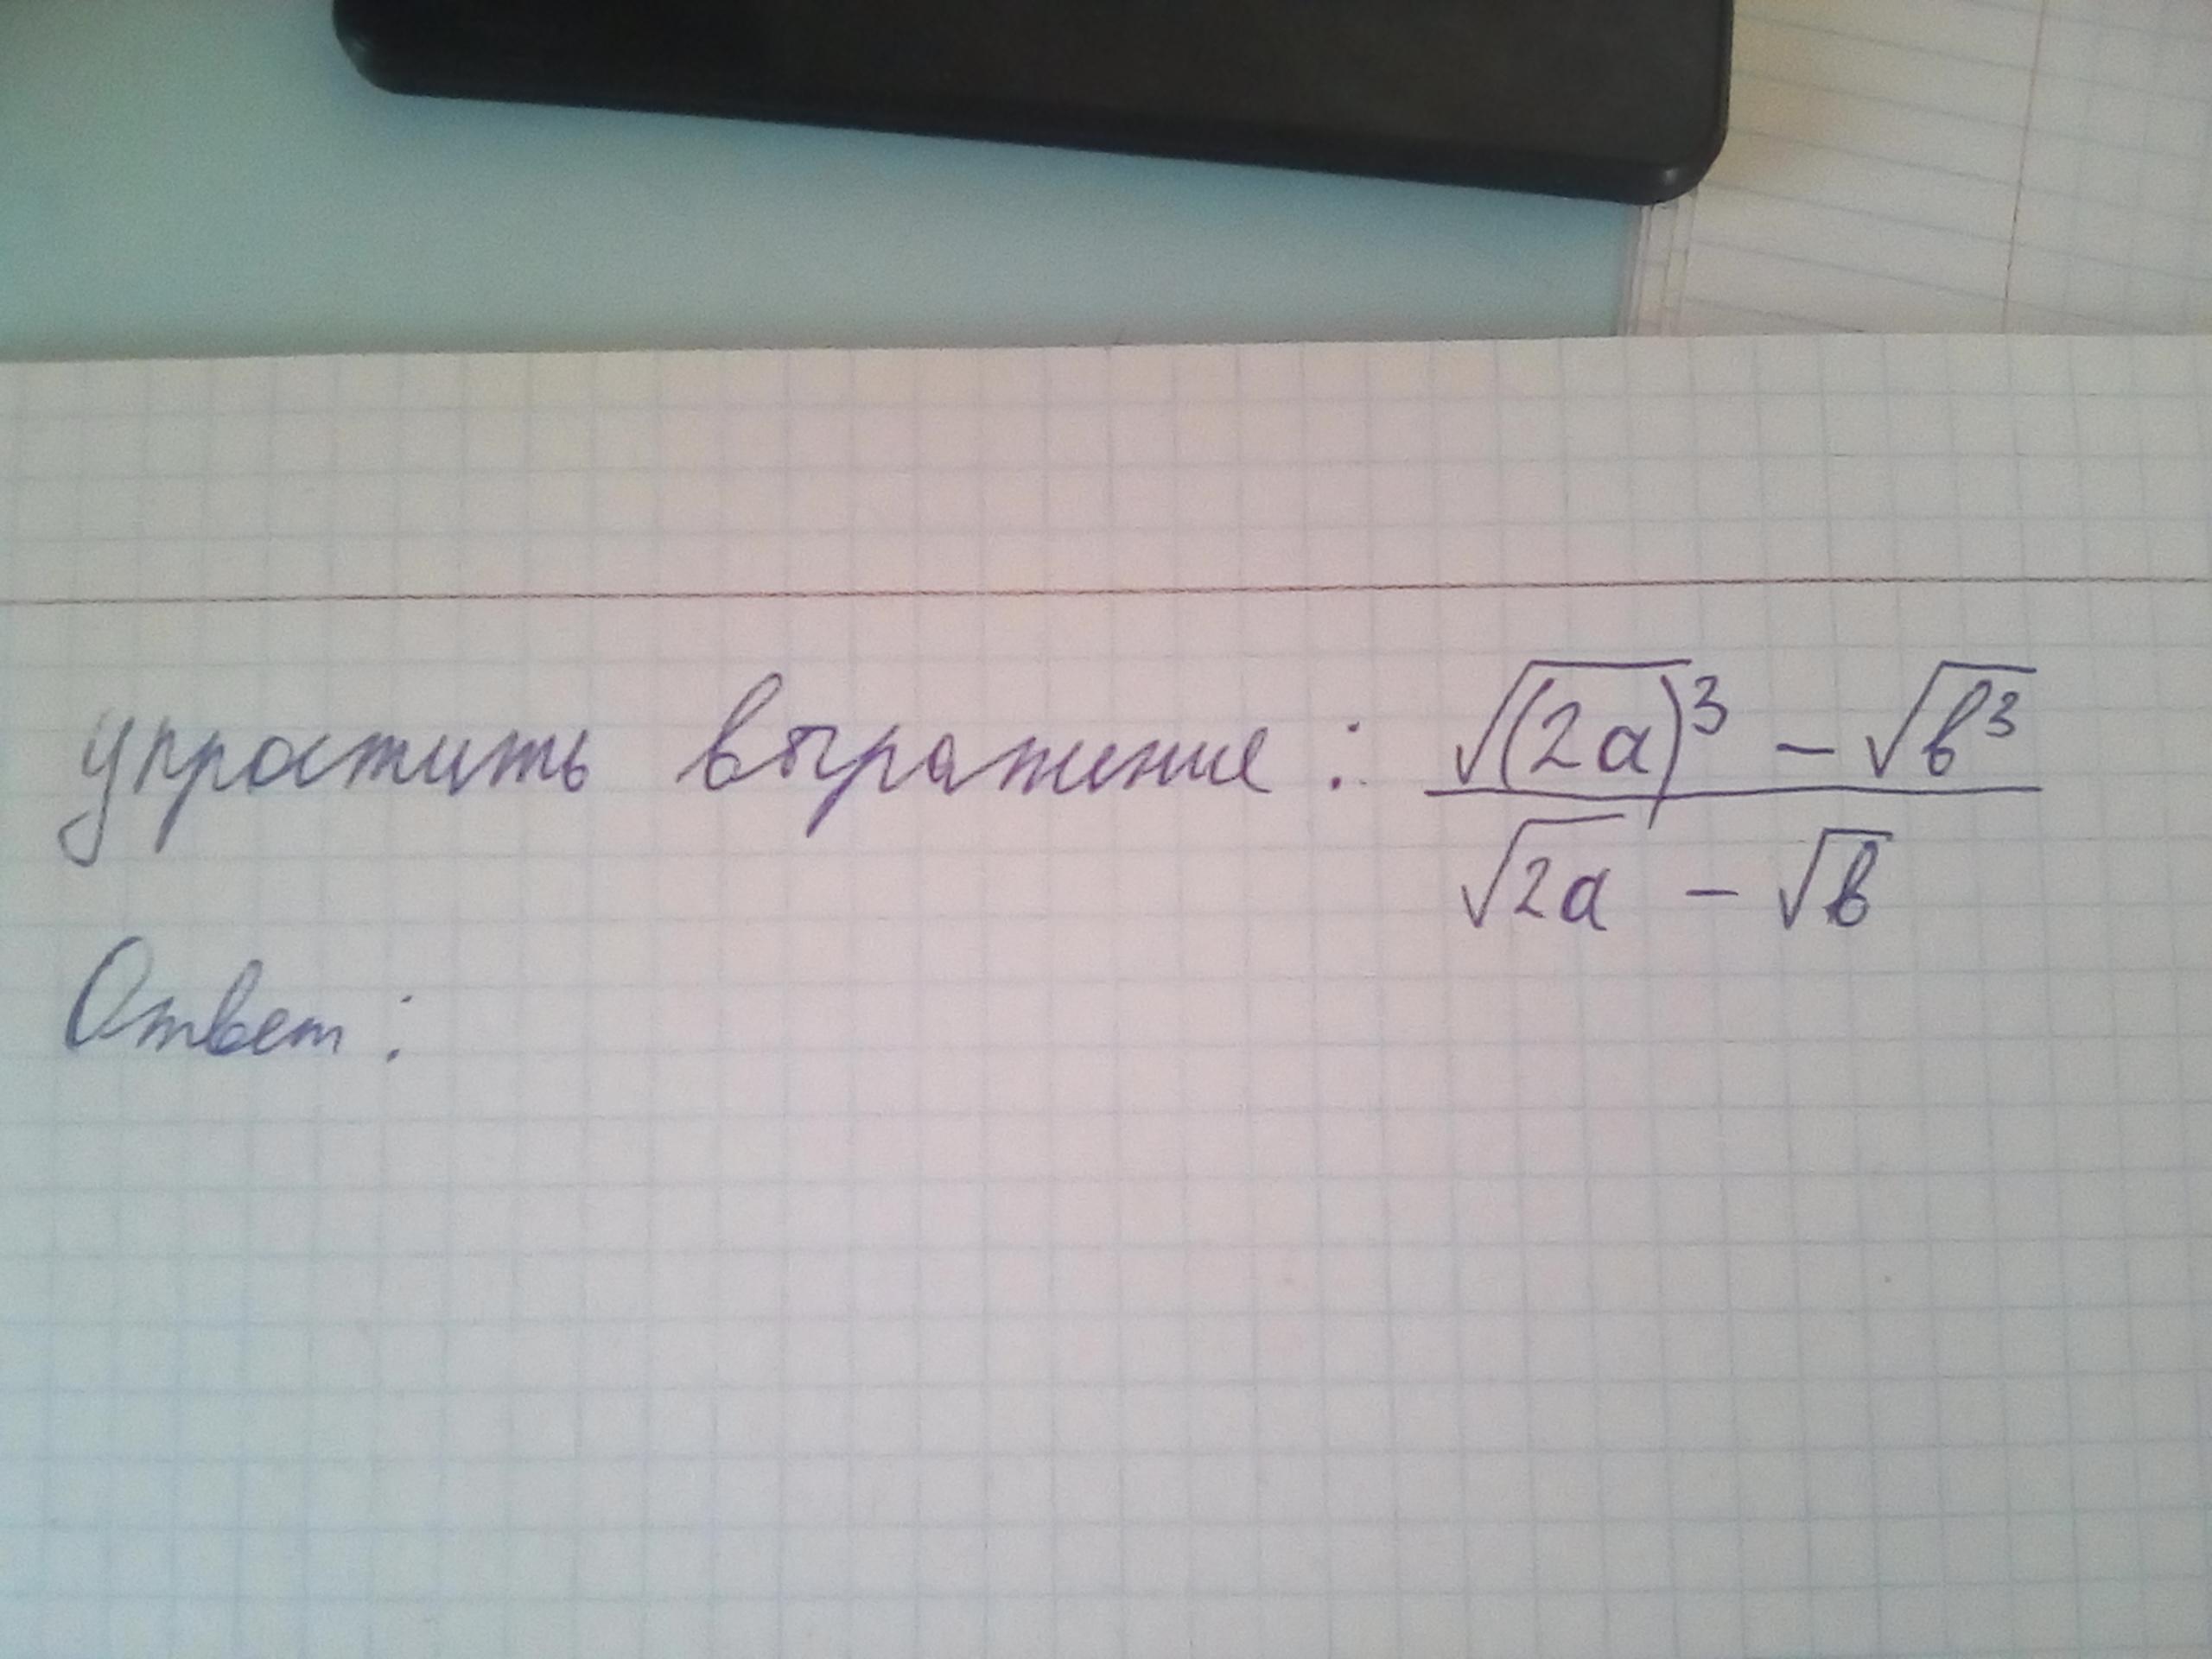 упростить выражение: (√(2a)³ - √b³)/(√2a - √b)
Ответ: